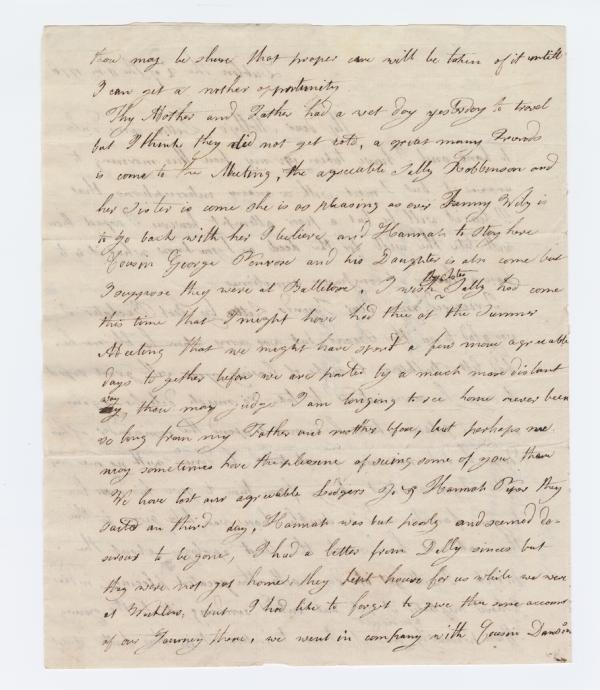 thou may be shure that proper care will be taken of it untill
I can get a nother opportunity
Thy Mother and Father had a wet day yesterday to travel
but I think they did not get cold, a great many Friends
is come to the Meeting, the agreeable Sally Robbinson and
her Sister is come she is as pleasing as ever Fanny Wily is
to go back with her I believe and Hannah to stay here
Cousin George Penrose and his Daughter is also come but
I suppose they were at Balletore, I wish thy Sister Sally had come
this time that I might have had thee at the Summer
Meeting that we might have spent a few more agreeable
days to gether before we are parted by a much more distant
way, thou may judge I am longing to see home never been
so long from my Father and mother before, but perhaps we
may sometimes have the pleasure of seeing some of you there
We have lost our agreeable Lodgers & Hannah they
on third day, Hannah was but poorly and seemed de-
sirous to be gone, I had a letter from Dilly sinces but
they were not got home they kept house for us while we were
at Wicklow, but I had like to forgot to give thee some account
of our Journey there, we went in company with Cousin Dawson